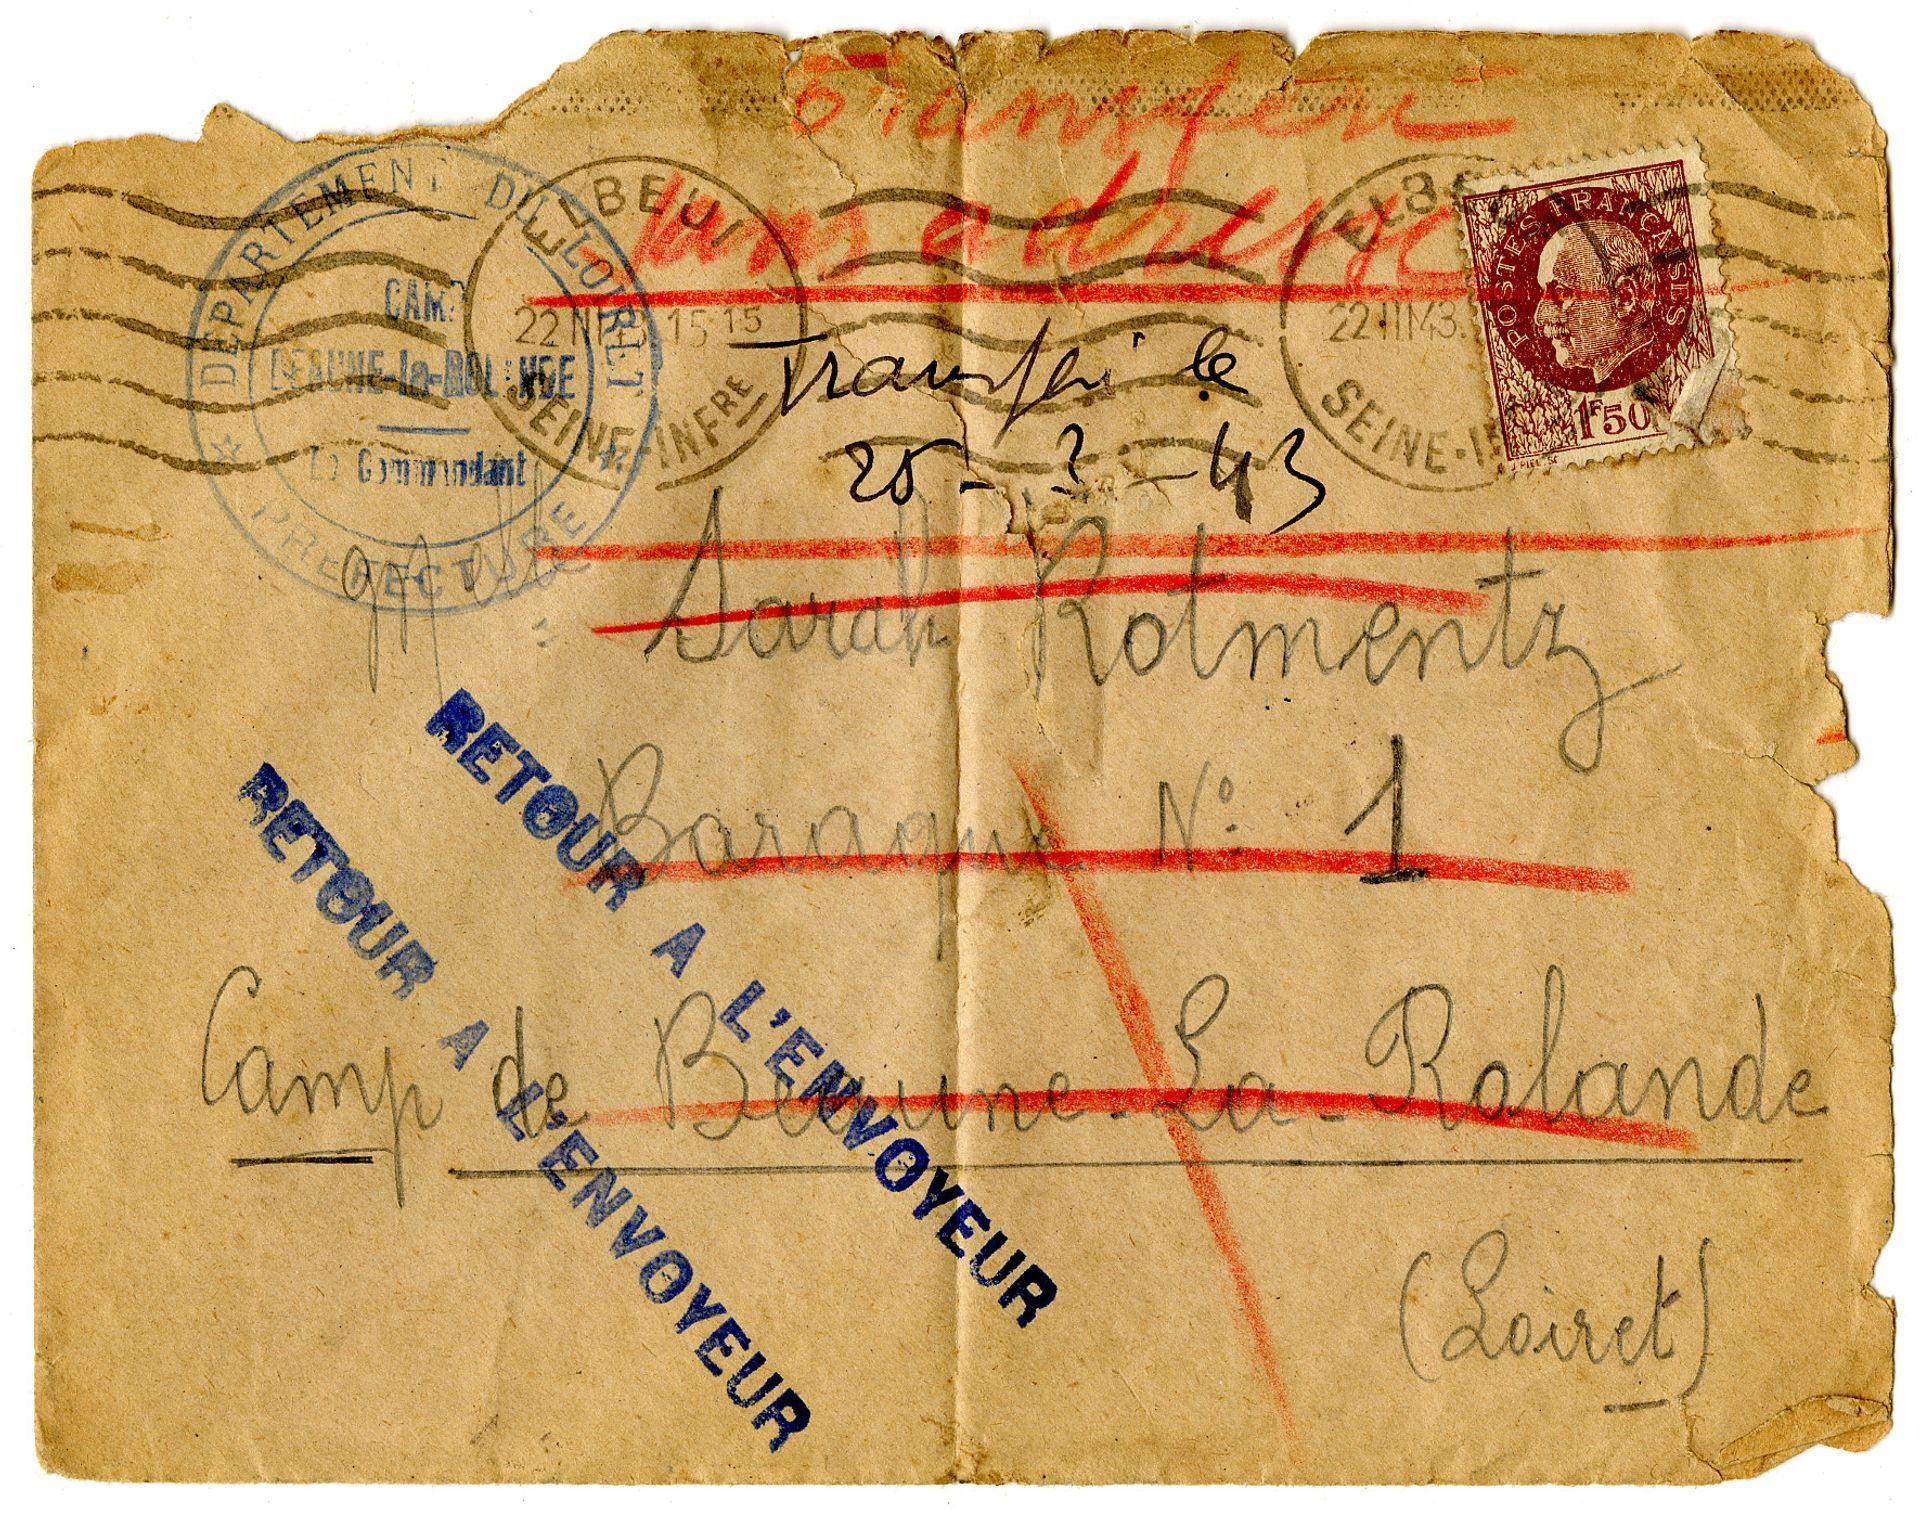 Transféré
sans adresse
DEPARTEMENT DU LOIRET
CAMP
BEAUNE-la-ROLANDE
Le Commandant
PREFECTURE
ELBEUF
15 15
SEINE-INFRE
ELBEUF
22 III 43
SEINE-I
POSTES FRANÇAISES
1F50
Transféré le
Sarah Rotmentz
Baraque No: 1
Camp de Beaune-La-Rolande
(Loiret)
RETOUR A L'ENVOYEUR
RETOUR A L'ENVOYEUR